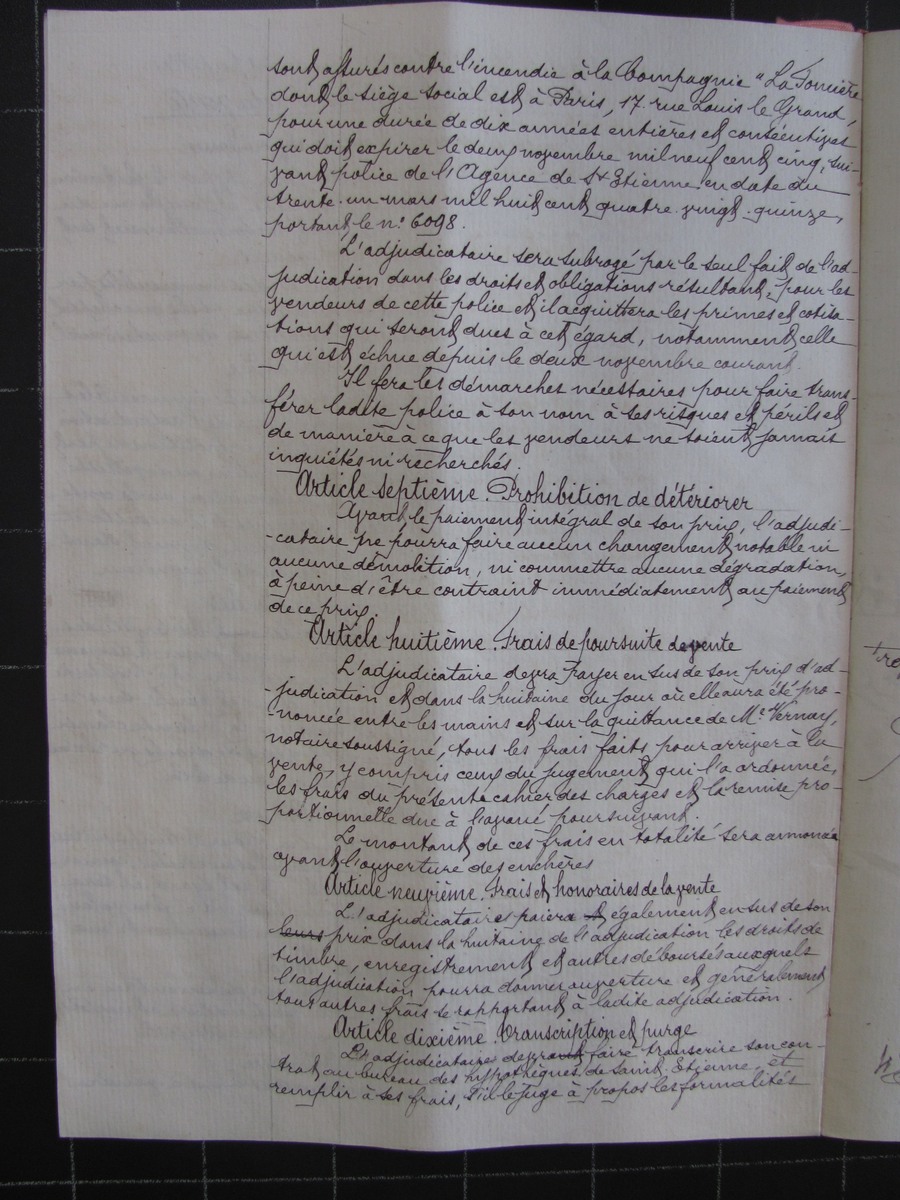 sont assurés contre l'incendie à la Compagnie "La Foncière
dont le siège social est à Paris, 17 rue Louis le Grand,
pour une durée de dix années entières et consécutives
qui doit expirer le deux novembre mil neuf cent cinq, sui-
vant police de l'Agence de St Etienne en date du
trente-un mars mil huit cent quatre-vingt-quinze,
portant le n° 6098.
L'adjudicataire sera subrogé par le seul fait de l'ad-
judication dans les droits et obligations résultant, pour les
vendeurs de cette police et il acquittera les primes et cotisa-
tions qui seront dues à cet égard, notamment celle
qui est échue depuis le deux novembre courant.
Il fera les démarches nécessaires pour faire trans-
férer ladite police à son nom à ses risques et périls et
de manière à ce que les vendeurs ne soient jamais
inquiétés ni recherchés.
Article septième. Prohibition de détériorer
Avant le paiement intégral de son prix, l'adjudi-
-cataire ne pourra faire aucun changement notable ni
aucune démolition, ni commettre aucune dégradation,
à peine d'être contraint immédiatement au paiement
de ce prix.
Article huitième. Frais de poursuite de vente
L'adjudicataire devra payer en sus de son prix d'ad-
-judication et dans la huitaine du jour où elle aura été pro-
-noncée entre les mains et sur la quittance de Me Vernay,
notaire soussigné, tous les frais faits pour arriver à la
vente, y compris ceux du jugement qui l'a ordonnée,
les frais du présent cahier des charges et la remise pro-
portionnelle due à l'avoué poursuivant.
Le montant de ces frais en totalité sera annoncé
avant l'ouverture des enchères
Article neuvième. Frais et honoraires de la vente
L'adjudicataire paiera et également en sus de son
leurs prix dans la huitaine de l'adjudication les droits de
timbre, enregistrement et autres déboursés auxquels
l'adjudication pourra donner ouverture et généralement
tous autres frais se rapportant à ladite adjudication.
Article dixième. Transcription et purge
L'adjudicataire devra faire transcrire son con-
trat au bureau des hypothèques de Saint-Etienne et
remplir à ses frais, s'il le juge à propos les formalités